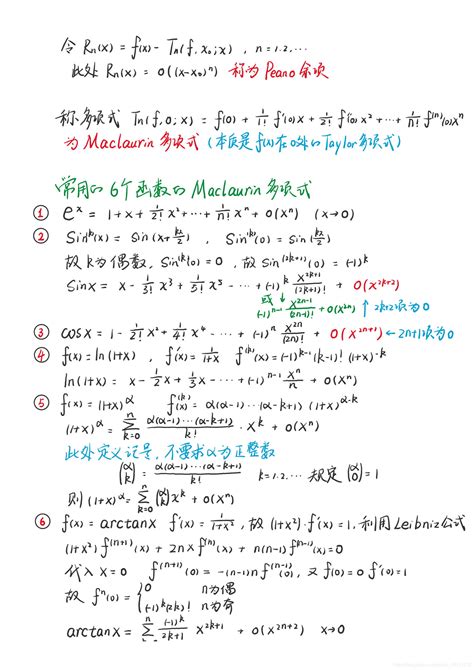 令 Rₙ(x) = f(x) - Tₙ(f, x₀; x), n=1.2.…
此处 Rₙ(x) = o((x-x₀)ⁿ) 称为Peano余项
称多项式 Tₙ(f,0;x) = f(0) + 1/1! f'(0)x + 1/2! f''(0)x² + ⋯ + 1/n! f⁽ⁿ⁾(0)xⁿ
为Maclaurin多项式 (本质是f(x)在0处的Taylor多项式)
常用的6个函数的Maclaurin多项式
① eˣ = 1+x+1/2! x²+⋯+1/n! xⁿ + o(xⁿ) (x→0)
② Sin⁽ᵏ⁾(x) = Sin(x+kπ/2), Sin⁽ᵏ⁾(0) = Sin(kπ/2)
故k为偶数, Sin⁽ᵏ⁾(0)=0, 故Sin⁽²ᵏ⁺¹⁾(0) = (-1)ᵏ
Sinx = x - 1/3! x³ + 1/5! x⁵ - ⋯ + (-1)ᵏ x²ᵏ⁺¹/(2k+1)! + o(x²ᵏ⁺²)
或 (-1)ⁿ⁻¹ x²ⁿ⁻¹/(2n-1)! + o(x²ⁿ) ↑2k+2项为0
③ cosx = 1 - 1/2! x² + 1/4! x⁴ - ⋯ + (-1)ⁿ x²ⁿ/(2n)! + o(x²ⁿ⁺¹) ← 2n+1项为0
④ f(x) = ln(1+x), f'(x) = 1/(1+x) f⁽ᵏ⁾(x) = (-1)ᵏ⁻¹(k-1)! (1+x)⁻ᵏ
ln(1+x) = x - 1/2 x + 1/3 x - ⋯ + (-1)ⁿ⁻¹ xⁿ/n + o(xⁿ)
⑤ f(x) = (1+x)^α f⁽ᵏ⁾(x) = α(α-1)⋯(α-k+1) (1+x)^(α-k)
(1+x)^α = Σ_{k=0}^{n} α(α-1)⋯(α-k+1)/k! · xᵏ + o(xⁿ)
此处定义记号, 不要求α为正整数
(α k) = α(α-1)⋯(α-k+1)/k! k=1.2.⋯ 规定 (α 0) = 1
则 (1+x)^α = Σ_{k=0}^{n} (α k) xᵏ + o(xⁿ)
⑥ f(x) = arctanx f'(x) = 1/(1+x²), 故(1+x²)·f'(x)=1, 利用Leibniz公式
(1+x²) f⁽ⁿ⁺¹⁾(x) + 2nx f⁽ⁿ⁾(x) + n(n-1) f⁽ⁿ⁻¹⁾(x) = 0
代入x=0 f⁽ⁿ⁺¹⁾(0) = -n(n-1) f⁽ⁿ⁻¹⁾(0), 又f(0)=0 f'(0)=1
故 fⁿ(0) = { 0 n为偶
(-1)ᵏ(2k)! n为奇
arctanx = Σ_{k=0}^{n} (-1)ᵏ/(2k+1) x²ᵏ⁺¹ + o(x²ⁿ⁺²) x→0